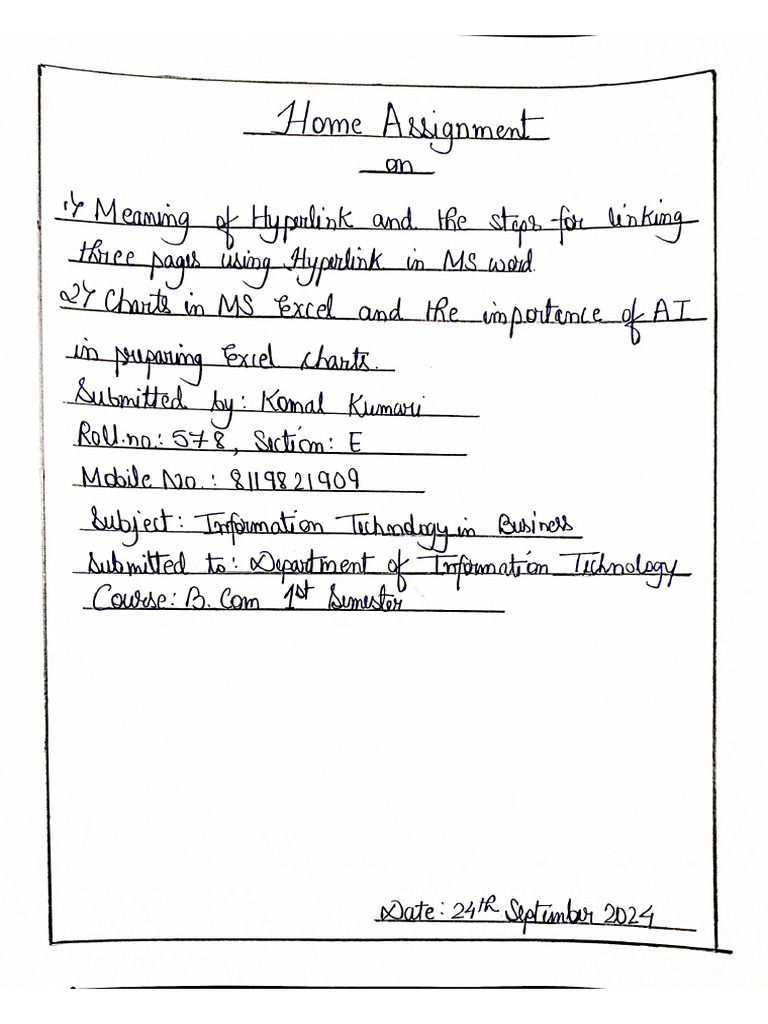 Home Assignment
on
1} Meaning of Hyperlink and the steps for linking
three pages using Hyperlink in MS word.
2} Charts in MS Excel and the importance of AI
in preparing Excel charts.
Submitted by: Komal Kumari
Roll.no.: 578, Section: E
Mobile No.: 8119821909
Subject: Information Technology in Business
Submitted to: Department of Information Technology
Course: B. Com 1st Semester
Date: 24th September 2024